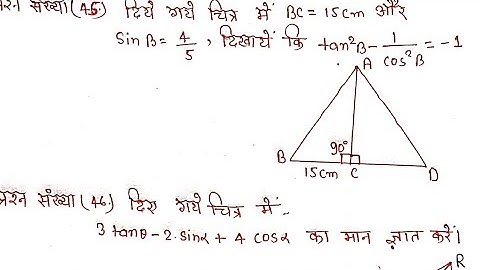 प्रश्न संख्या (45) दिये गये चित्र में BC = 15cm और
Sin B = 4/5 , दिखायें कि tan²B - 1/cos²B = -1
A
90°
B
15cm
C
D
प्रश्न संख्या (46) दिए गये चित्र में..
3 tanθ - 2·sinα + 4 cosα का मान ज्ञात करें।
R